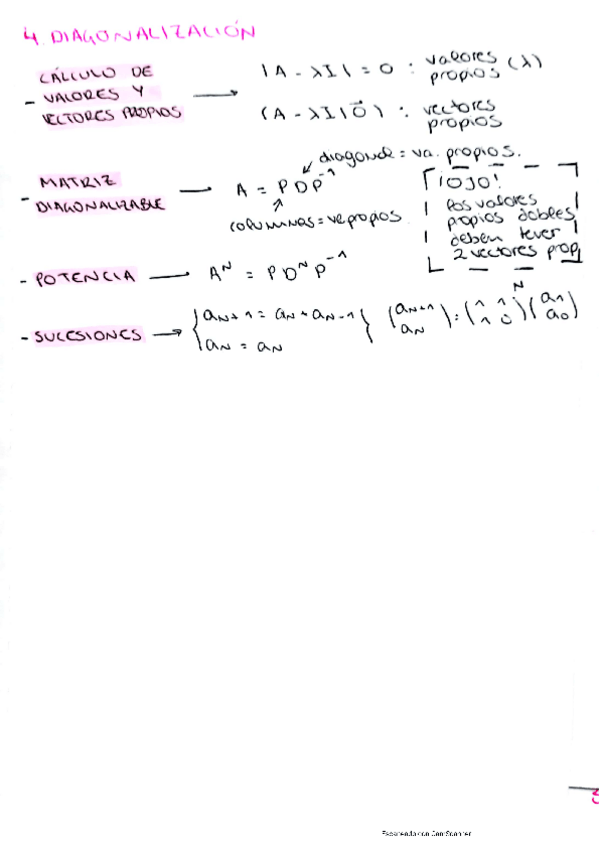 4. DIAGONALIZACIÓN
- CÁLCULO DE VALORES Y VECTORES PROPIOS → |A - λI| = 0 : valores propios (λ)
(A - λI|0⃗) : vectores propios
diagonal = va. propios.
- MATRIZ DIAGONALIZABLE — A = PDP⁻¹
columnas = ve propios
¡OJO!
los valores
propios dobles
deben tener
2 vectores prop
- POTENCIA — Aᴺ = PDᴺP⁻¹
- SUCESIONES → { aN+1 = aN + aN-1
aN = aN } (aN+1 aN) = (1 1 1 0)ᴺ (a1 a0)
5
Escaneado con CamScanner